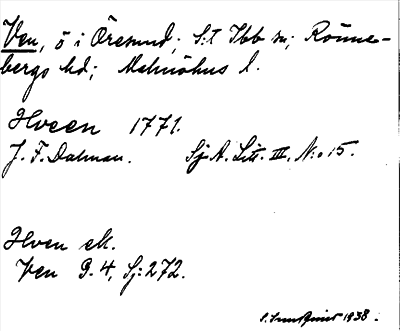 Ven, ö i Öresund; S:t Ibb sn; Rönne-
bergs hd; Malmöhus l.
Hveen 1771.
J. F. Dalman. Sj A. Litt. III, N:o 15.
Hven ek.
Ven G. 4, Sj: 272.
1938.